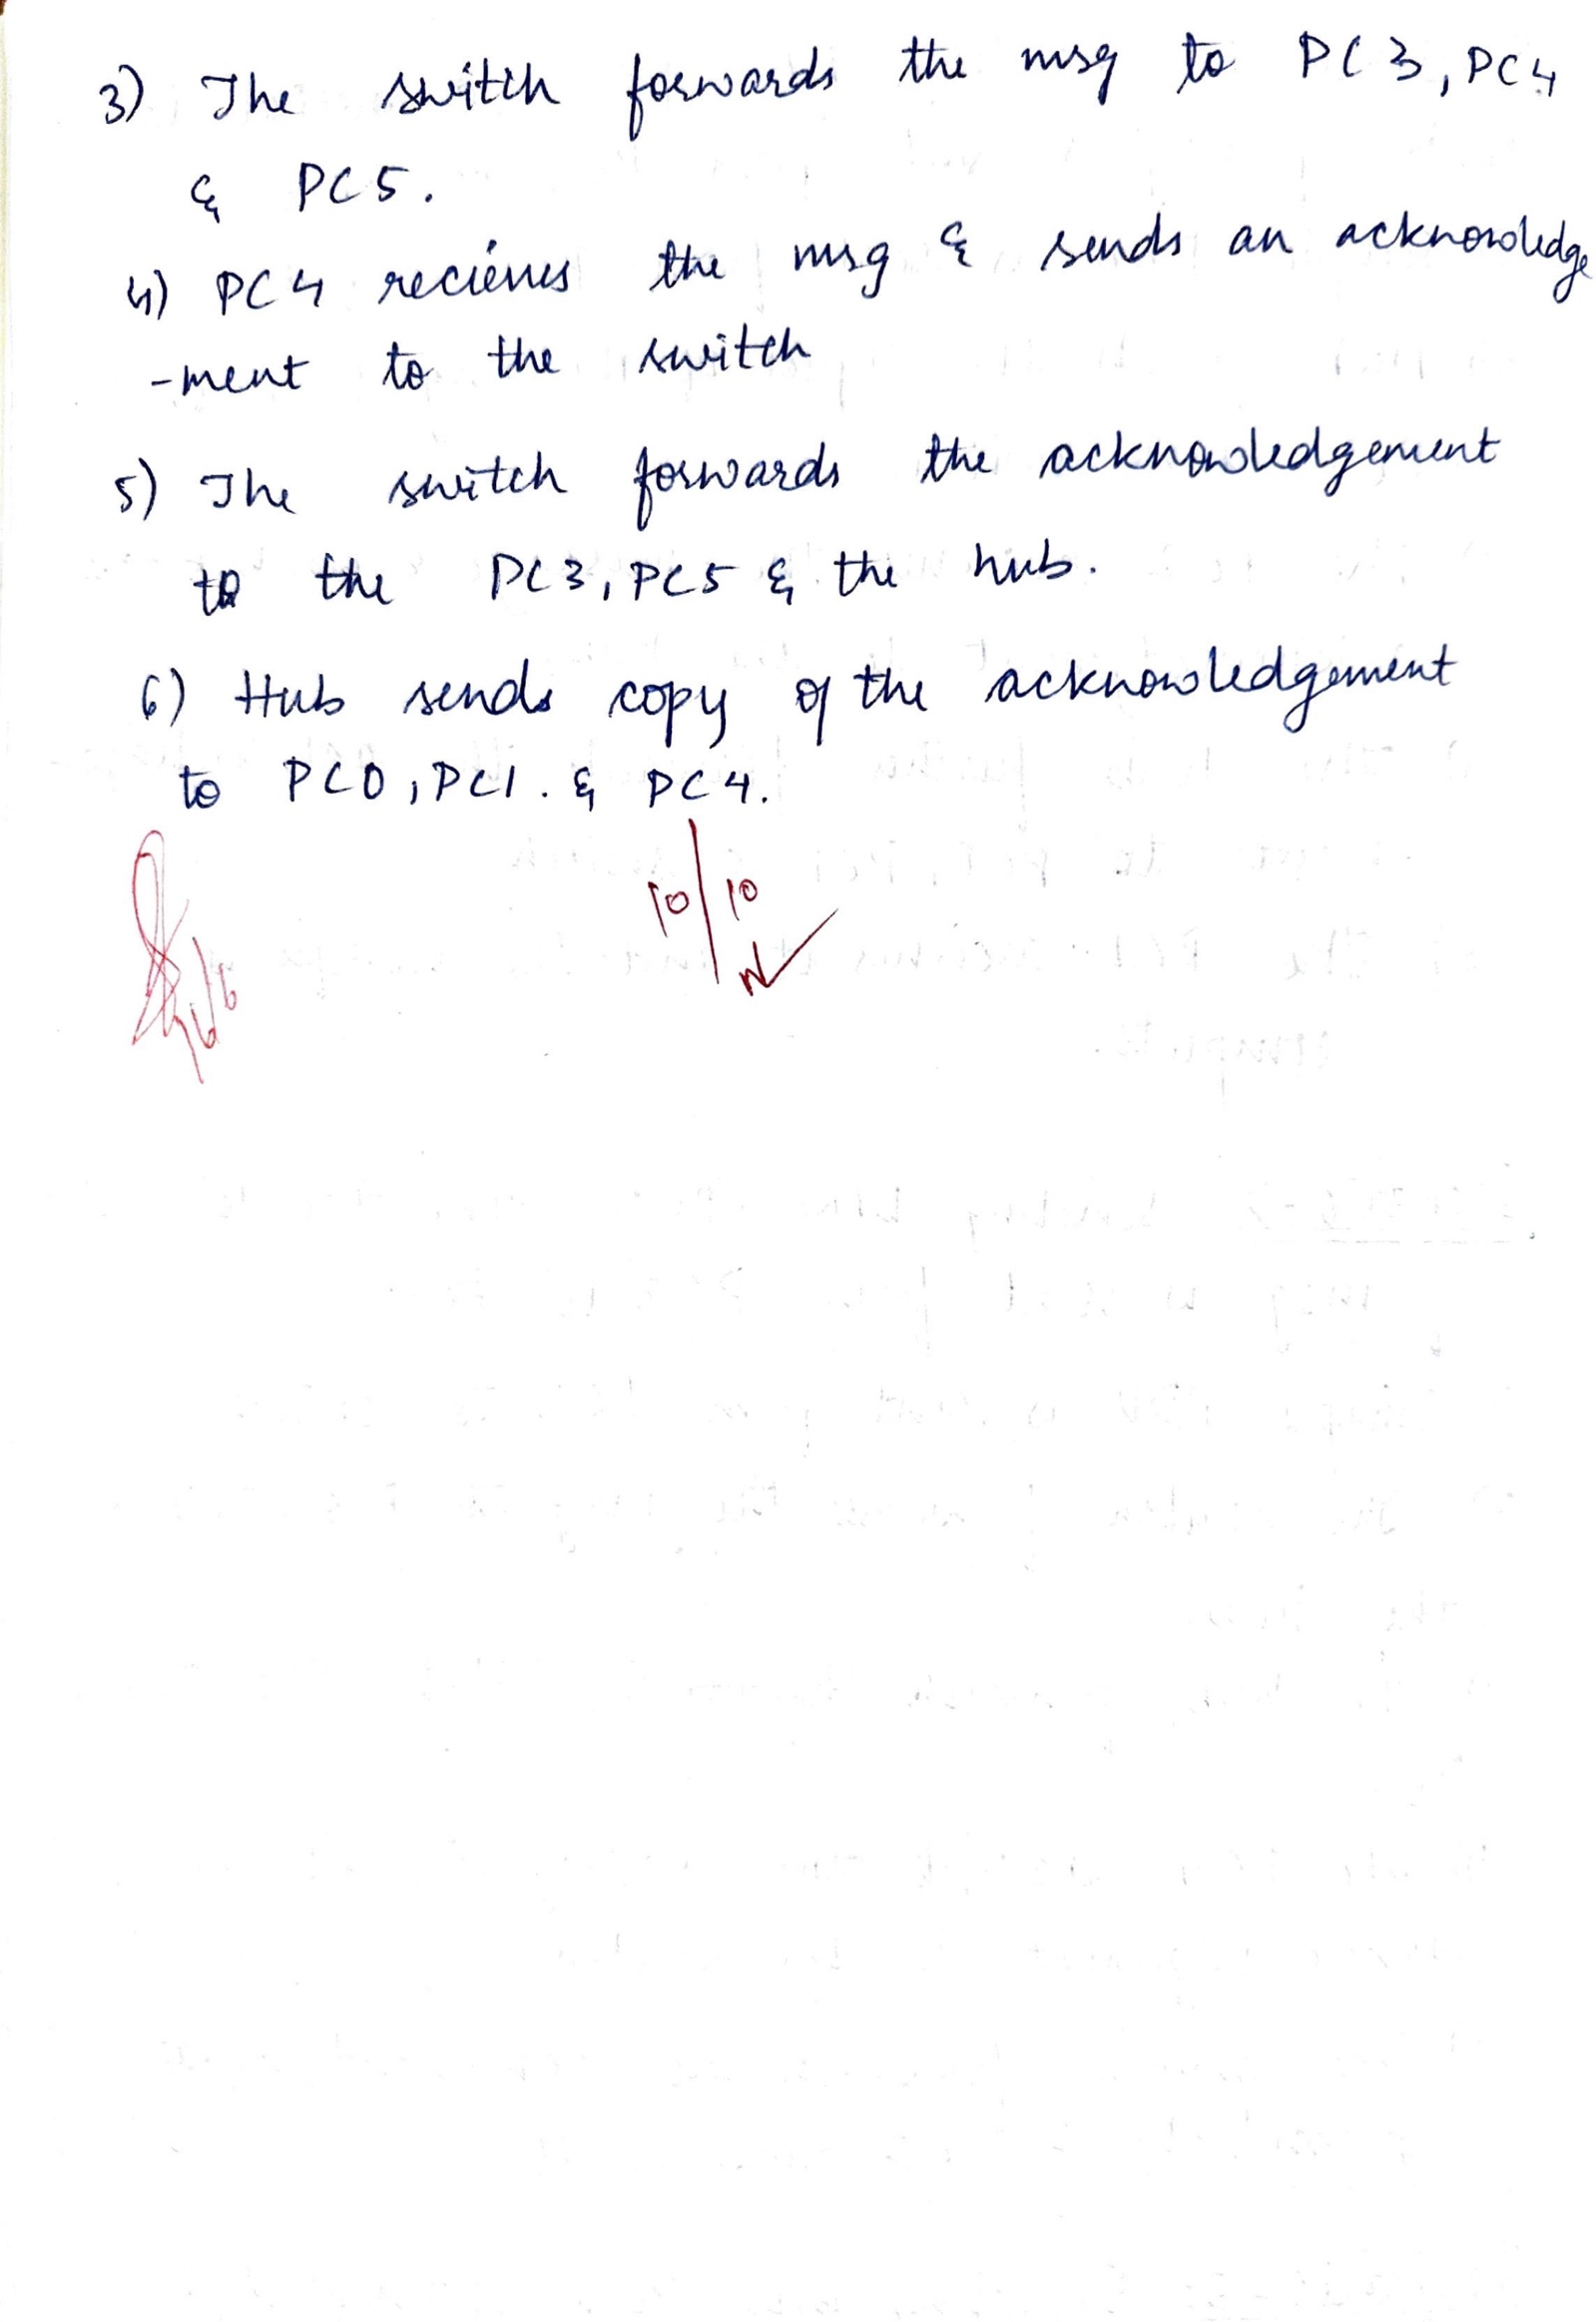 3) The switch forwards the msg to PC3, PC4
& PC5.
4) PC4 recieves the msg & sends an acknowledge
-ment to the switch
5) The switch forwards the acknowledgement
to the PC3, PC5 & the hub.
6) Hub sends copy of the acknowledgement
to PC0, PC1. & PC4.
10/10